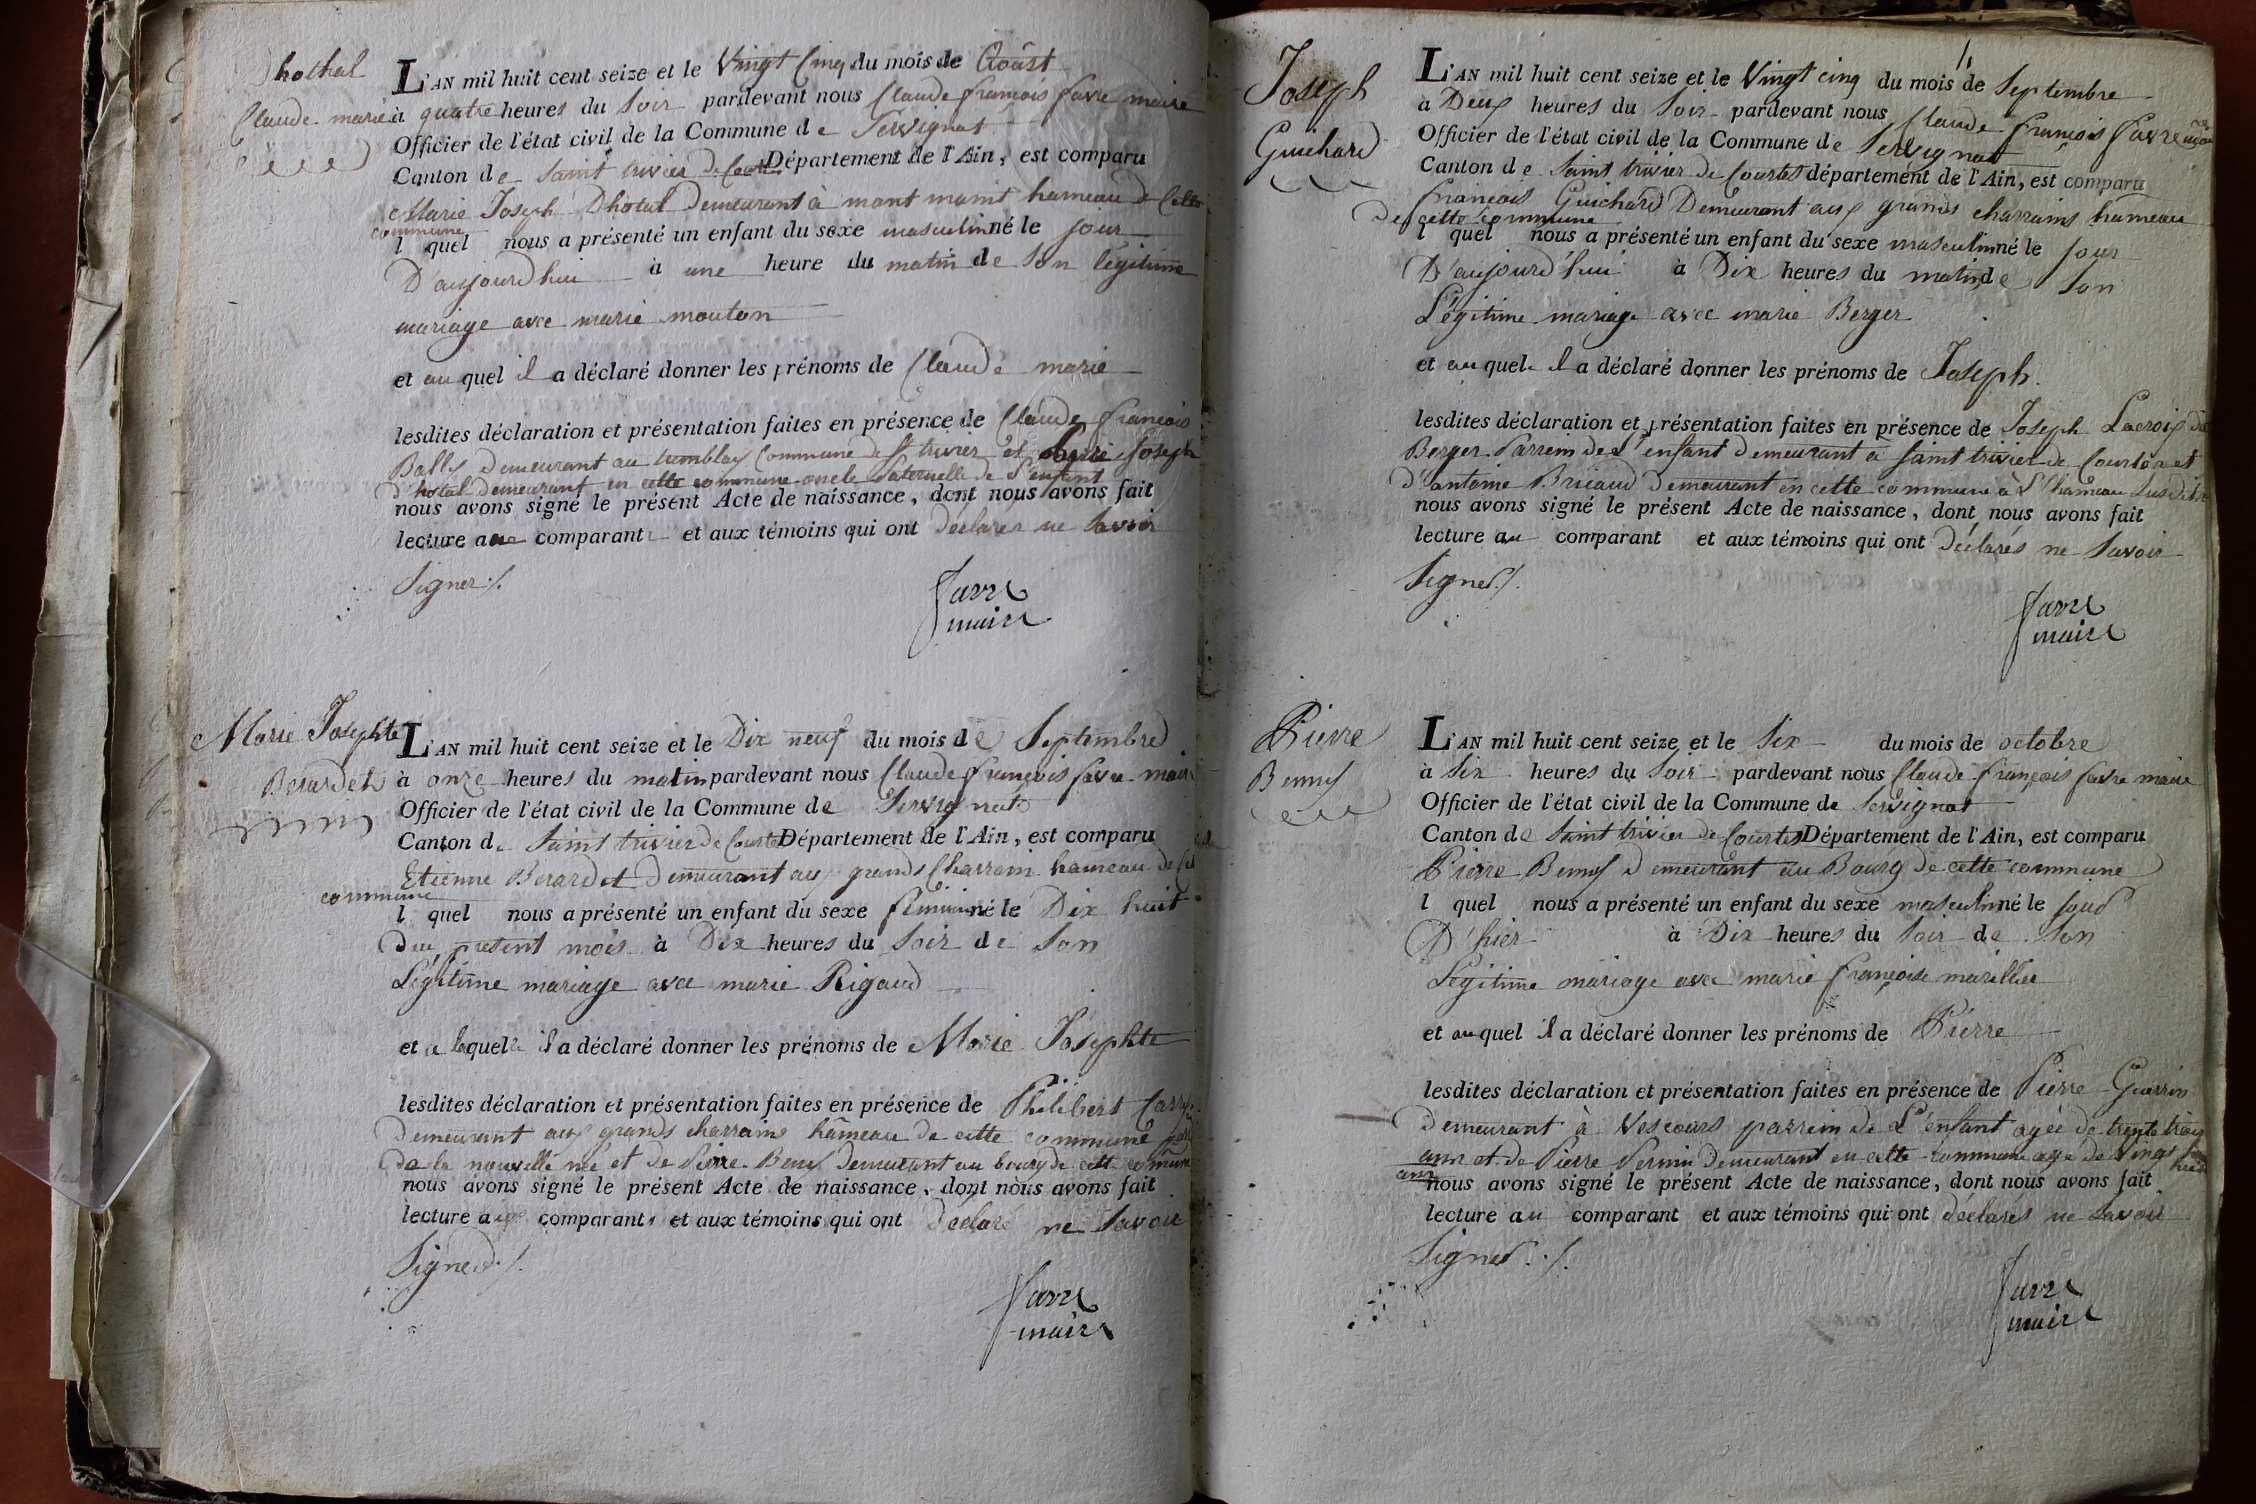 Dhothal
Claude marie
L'AN mil huit cent seize et le Vingt Cinq du mois de Aoûst
à quatre heures du Soir pardevant nous Claude françois favre maire
Officier de l'état civil de la Commune de Servignat
Canton de Saint trivier de Courtes Département de l'Ain, est comparu
Marie Joseph Dhotal Demeurant à mont hameau de Cette
commune
l quel nous a présenté un enfant du sexe masculin né le jour
D'aujourdhui à une heure du matin de Son légitime
mariage avec marie mouton
et au quel il a déclaré donner les prénoms de Claude marie
lesdites déclaration et présentation faites en présence de Claude françois
Bally Demeurant au tremblay Commune de St trivier et Joseph
d'hotal Demeurant en cette commune oncle Paternelle de L'enfant
nous avons signé le présent Acte de naissance, dont nous avons fait
lecture aux comparant et aux témoins qui ont déclarer ne Savoir
Signer ./.
favre
maire
Marie Josephte
Berardet
L'AN mil huit cent seize et le Dix neuf du mois de Septembre
à onze heures du matin pardevant nous Claude françois favre maire
Officier de l'état civil de la Commune de Servignat
Canton de Saint trivier de Courtes Département de l'Ain, est comparu
Etienne Berardet Demeurant aux grands Charrain hameau de
commune
l quel nous a présenté un enfant du sexe féminin né le Dix huit
Du présent mois à Dix heures du Soir de Son
Légitime mariage avec marie Rigaud
et a laquelle il a déclaré donner les prénoms de Marie Josephte
lesdites déclaration et présentation faites en présence de Philibert
Demeurant aux grands charrains hâmeau de cette commune
de la nouvelle née et de Pierre Demeurant au bourg de cette commune
nous avons signé le présent Acte de naissance, dont nous avons fait
lecture aux comparants et aux témoins qui ont déclaré ne Savoir
Signer ./.
favre
maire
Joseph
Guichard
L'AN mil huit cent seize et le Vingt cinq du mois de Septembre
à Deux heures du Soir pardevant nous Claude françois favre maire
Officier de l'état civil de la Commune de Servignat
Canton de Saint trivier de Courtes département de l'Ain, est comparu
françois Guichard Demeurant aux grands charrains hameau
De cette Commune
l quel nous a présenté un enfant du sexe masculin né le Jour
D'aujourd'hui à Dix heures du matin de Son
Légitime mariage avec marie Berger
et au quel il a déclaré donner les prénoms de Joseph.
lesdites déclaration et présentation faites en présence de Joseph Lacroix de
Berger Parrein de L'enfant demeurant à Saint trivier de Courtes et
d'antoine Bricaud Demeurant en cette commune à L'hâmeau Susdit
nous avons signé le présent Acte de naissance, dont nous avons fait
lecture au comparant et aux témoins qui ont déclarés ne Savoir
Signer ./.
favre
maire
Pierre
L'AN mil huit cent seize et le Six du mois de octobre
à Six heures du Soir pardevant nous Claude françois favre maire
Officier de l'état civil de la Commune de Servignat
Canton de Saint trivier de Courtes Département de l'Ain, est comparu
Pierre Demeurant au Bourg de cette commune
l quel nous a présenté un enfant du sexe masculin né le Jour
D'hier à Dix heures du Soir de Son
Légitime mariage avec marie françoise marillier
et au quel il a déclaré donner les prénoms de Pierre
lesdites déclaration et présentation faites en présence de Pierre Guerrin
demeurant à Vescours parrein de L'enfant agée de trente trois
ans et de Pierre Demeurant en cette commune agé de Vingt
ans
nous avons signé le présent Acte de naissance, dont nous avons fait
lecture au comparant et aux témoins qui ont déclarés ne Savoir
Signer ./.
favre
maire